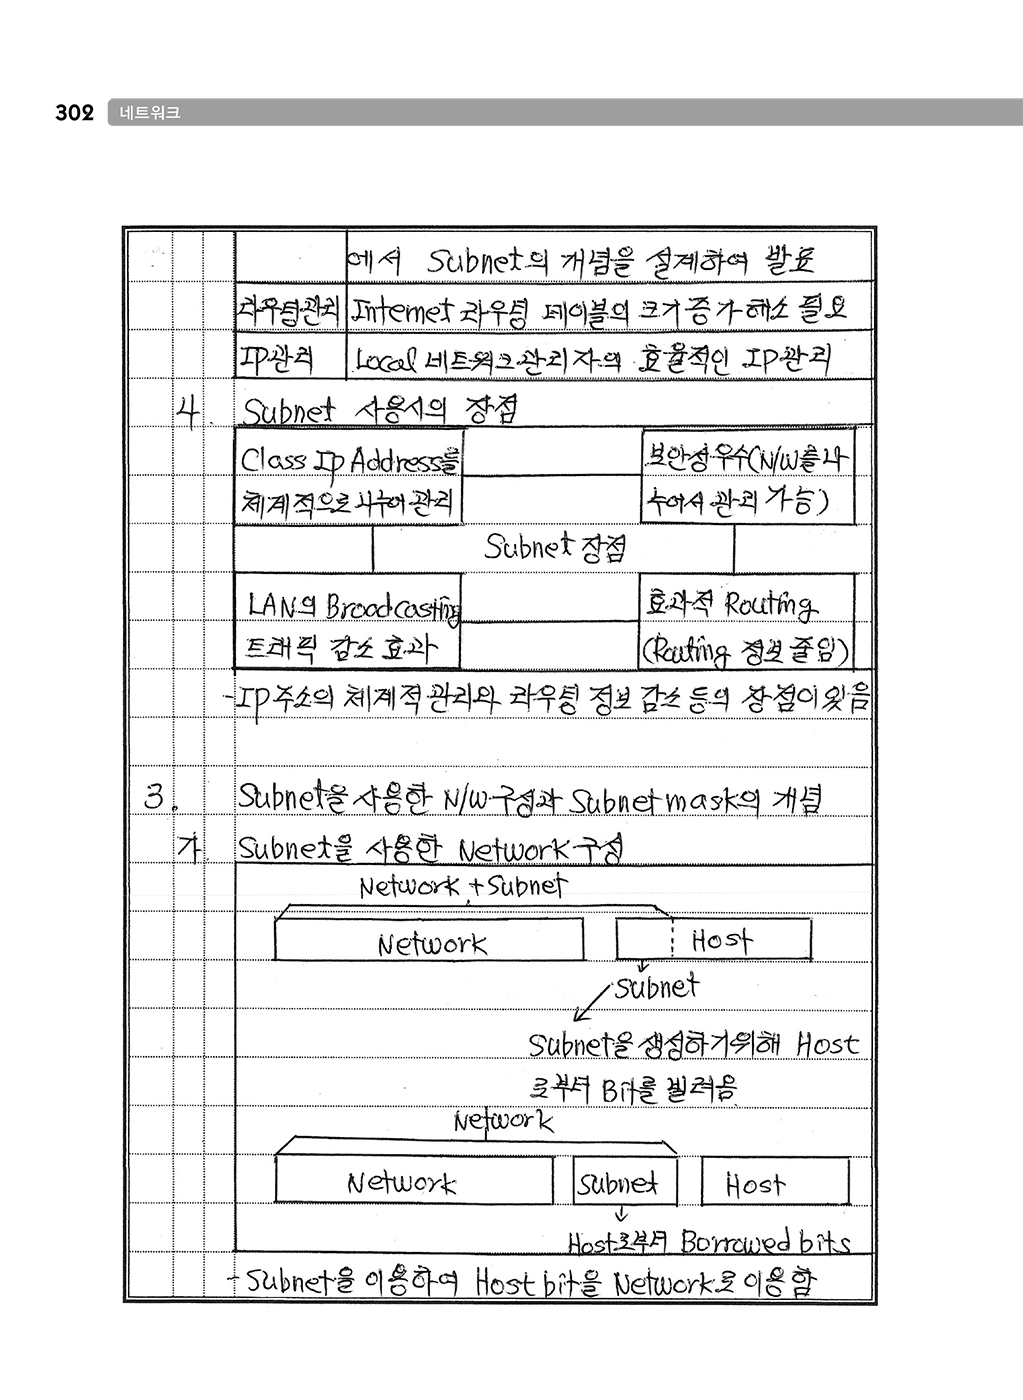 302 네트워크
에서 Subnet의 개념을 설계하여 발표
라우팅관리 Internet 라우팅 테이블의 크기 증가 해소 필요
IP관리 Local 네트워크 관리자의 효율적인 IP 관리
4. Subnet 사용시의 장점
Class Ip Address를 보안성 우수(N/W를 나
체계적으로 나누어 관리 누어서 관리 가능)
Subnet 장점
LAN의 Broadcasting 효과적 Routing
트래픽 감소 효과 (Routing 정보 줄임)
- IP 주소의 체계적 관리와 라우팅 정보 감소 등의 장점이 있음
3. Subnet을 사용한 N/W 구성과 Subnet mask의 개념
가. Subnet을 사용한 Network 구성
Network + Subnet
Network Host
Subnet
Subnet을 생성하기위해 Host
로부터 Bit를 빌려옴
Network
Network Subnet Host
Host로부터 Borrowed bits
- Subnet을 이용하여 Host bit을 Network로 이용함